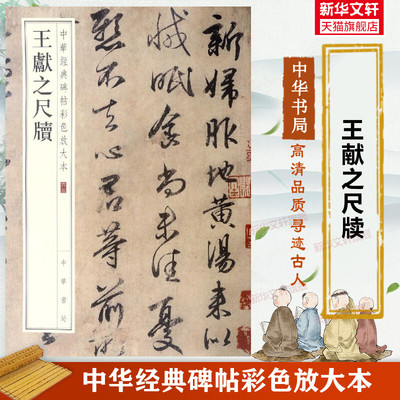 新华文轩
天猫 TMALL.COM
王献之尺牍
中华书局
高清品质 寻迹古人
新婦服地黄湯来似
減眠食尚未佳憂
懸不去心君等前
中華經典碑帖彩色放大本
王獻之尺牘
中華書局
中华经典碑帖彩色放大本